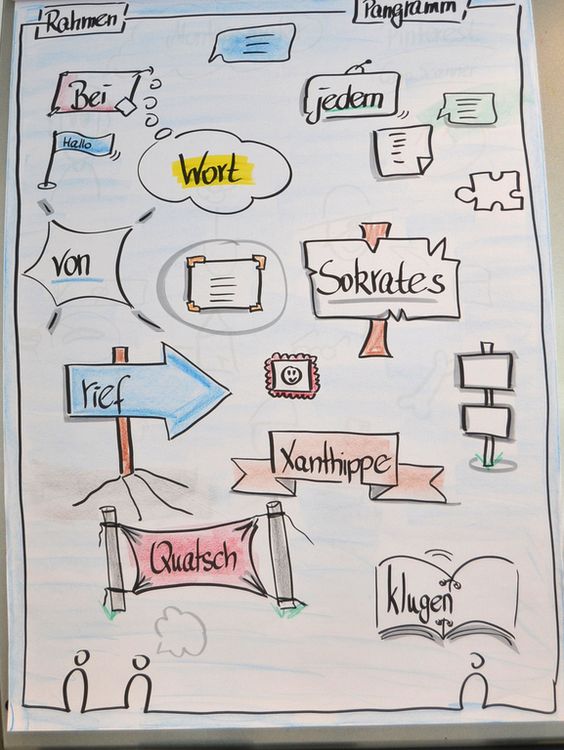 Rahmen
Pangramm
Bei
jedem
Hallo
Wort
von
Sokrates
rief
Xanthippe
Quatsch
klugen